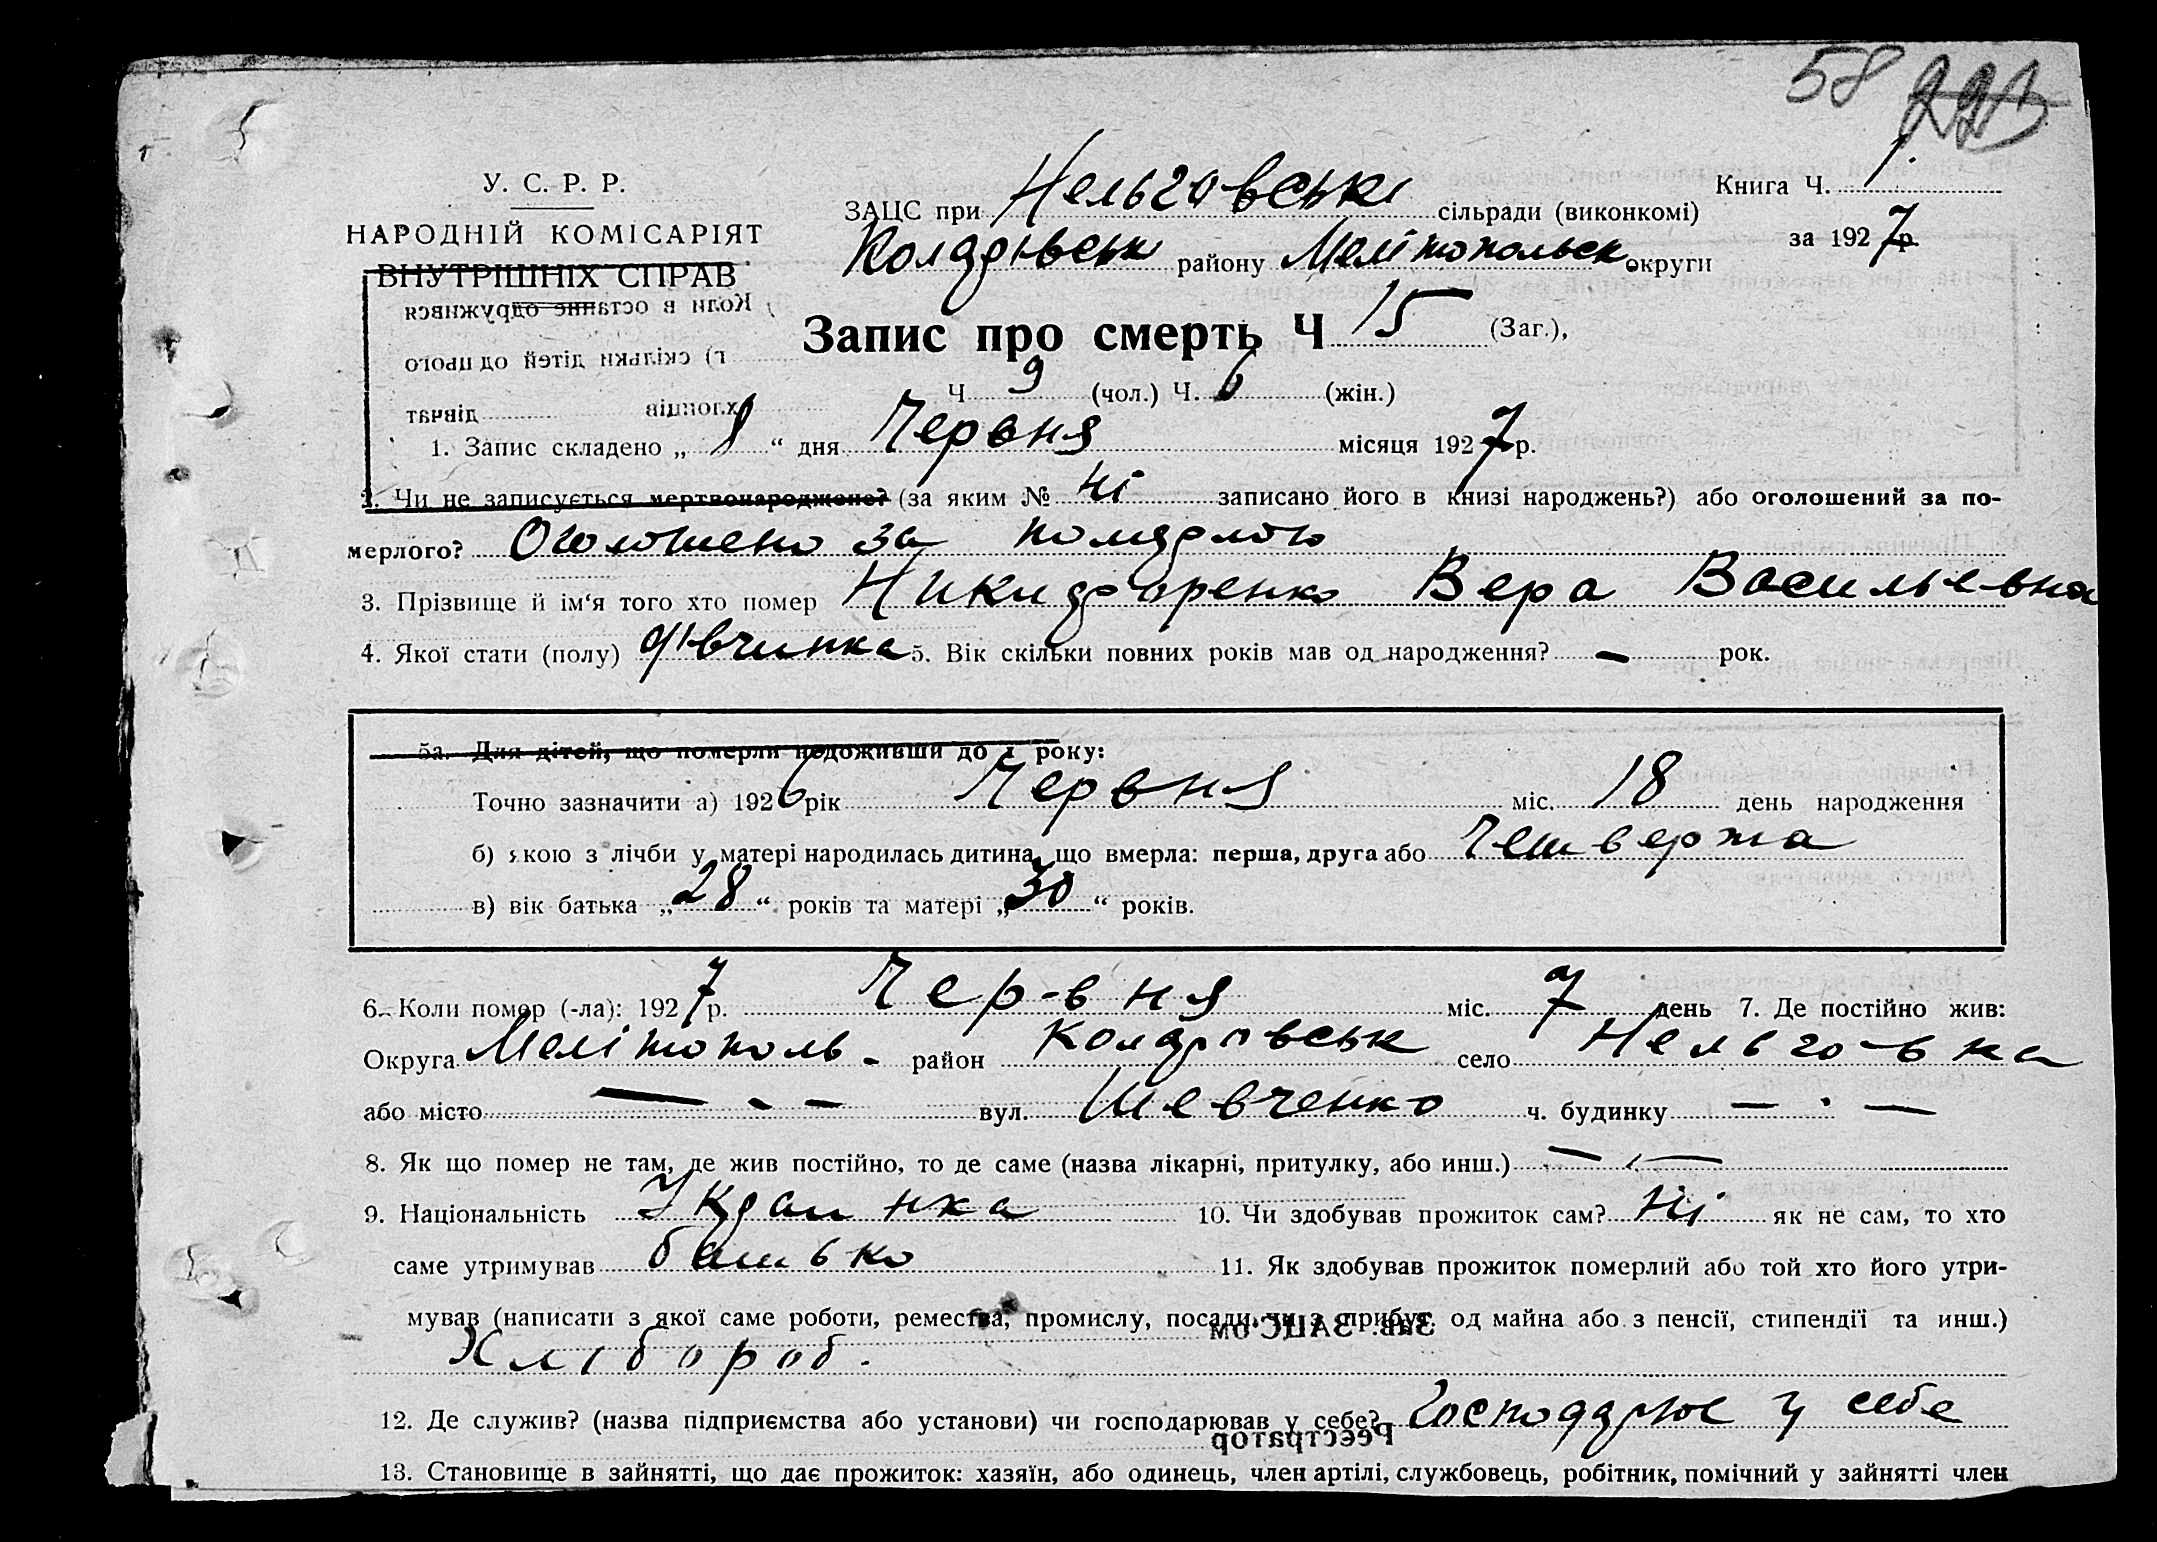 58
У. С. Р. Р.
НАРОДНІЙ КОМІСАРІЯТ
ВНУТРІШНІХ СПРАВ
ЗАЦС при Нельговські сільради (виконкомі)
Книга Ч. 1.
районy Мелітопольск округи
за 1927 р.
Запис про смерть Ч 15 (Заг.),
Ч 9 (чол.) Ч. 6 (жін.)
1. Запис складено „ 8 “ дня Червня місяця 1927 р.
2. Чи не записується мертвонароджене? (за яким № ні записано його в книзі народжень?) або оголошений за по-
мерлого? Оголошено за
3. Прізвище й ім‘я того хто помер Никифоренко Вера Васильевна
4. Якої стати (полу) дівчинка 5. Вік скільки повних років мав од народження? — рок.
5а. Для дітей, що померли недоживши до 1 року:
Точно зазначити а) 1926 рік Червня міс. 18 день народження
б) якою з лічби у матері народилась дитина, що вмерла: перша, друга або Четверта
в) вік батька „ 28 “ років та матері „ 30 “ років.
6. Коли помер (-ла): 1927 р. Чер-вня міс. 7 день 7. Де постійно жив:
Округа Мелітополь - район село Нельговка
або місто — - — вул. Шевченко ч. будинку — . —
8. Як що помер не там, де жив постійно, то де саме (назва лікарні, притулку, або инш.) — . —
9. Національність Украинка 10. Чи здобував прожиток сам? Ні як не сам, то хто
саме утримував батько 11. Як здобував прожиток померлий або той хто його утри-
мував (написати з якої саме роботи, ремества, промислу, посади чи з прибут. од майна або з пенсії, стипендії та инш.)
Хлібороб.
12. Де служив? (назва підприємства або установи) чи господарював у себе? Господарює у себе
13. Становище в зайнятті, що дає прожиток: хазяїн, або одинець, член артілі, службовець, робітник, помічний у зайнятті член